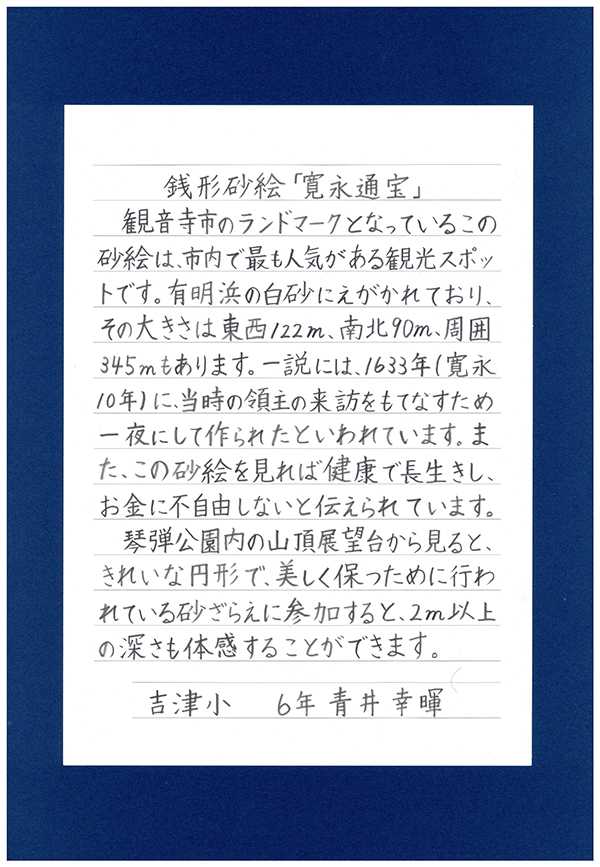 銭形砂絵「寛永通宝」
観音寺市のランドマークとなっているこの
砂絵は、市内で最も人気がある観光スポッ
トです。有明浜の白砂にえがかれており、
その大きさは東西122m、南北90m、周囲
345mもあります。一説には、1633年(寛永
10年)に、当時の領主の来訪をもてなすため
一夜にして作られたといわれています。ま
た、この砂絵を見れば健康で長生きし、
お金に不自由しないと伝えられています。
琴弾公園内の山頂展望台から見ると、
きれいな円形で、美しく保つために行わ
れている砂ざらえに参加すると、2m以上
の深さも体感することができます。
吉津小 6年 青井幸暉